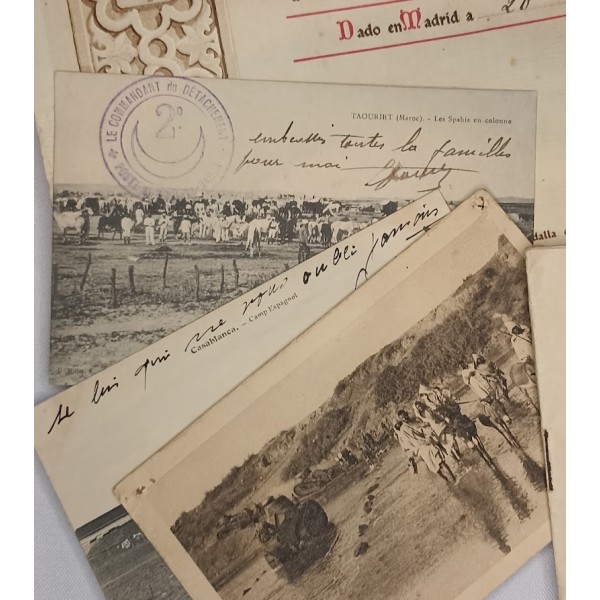 Dado en Madrid a 20
LE COMMANDANT du DÉTACHEMENT
2e
TAOURIRT (Maroc). - Les Spahis en colonne
embrasses toutes la familles
pour moi
dalla
Casablanca. - Camp Espagnol
qui ne vous oubli jamais